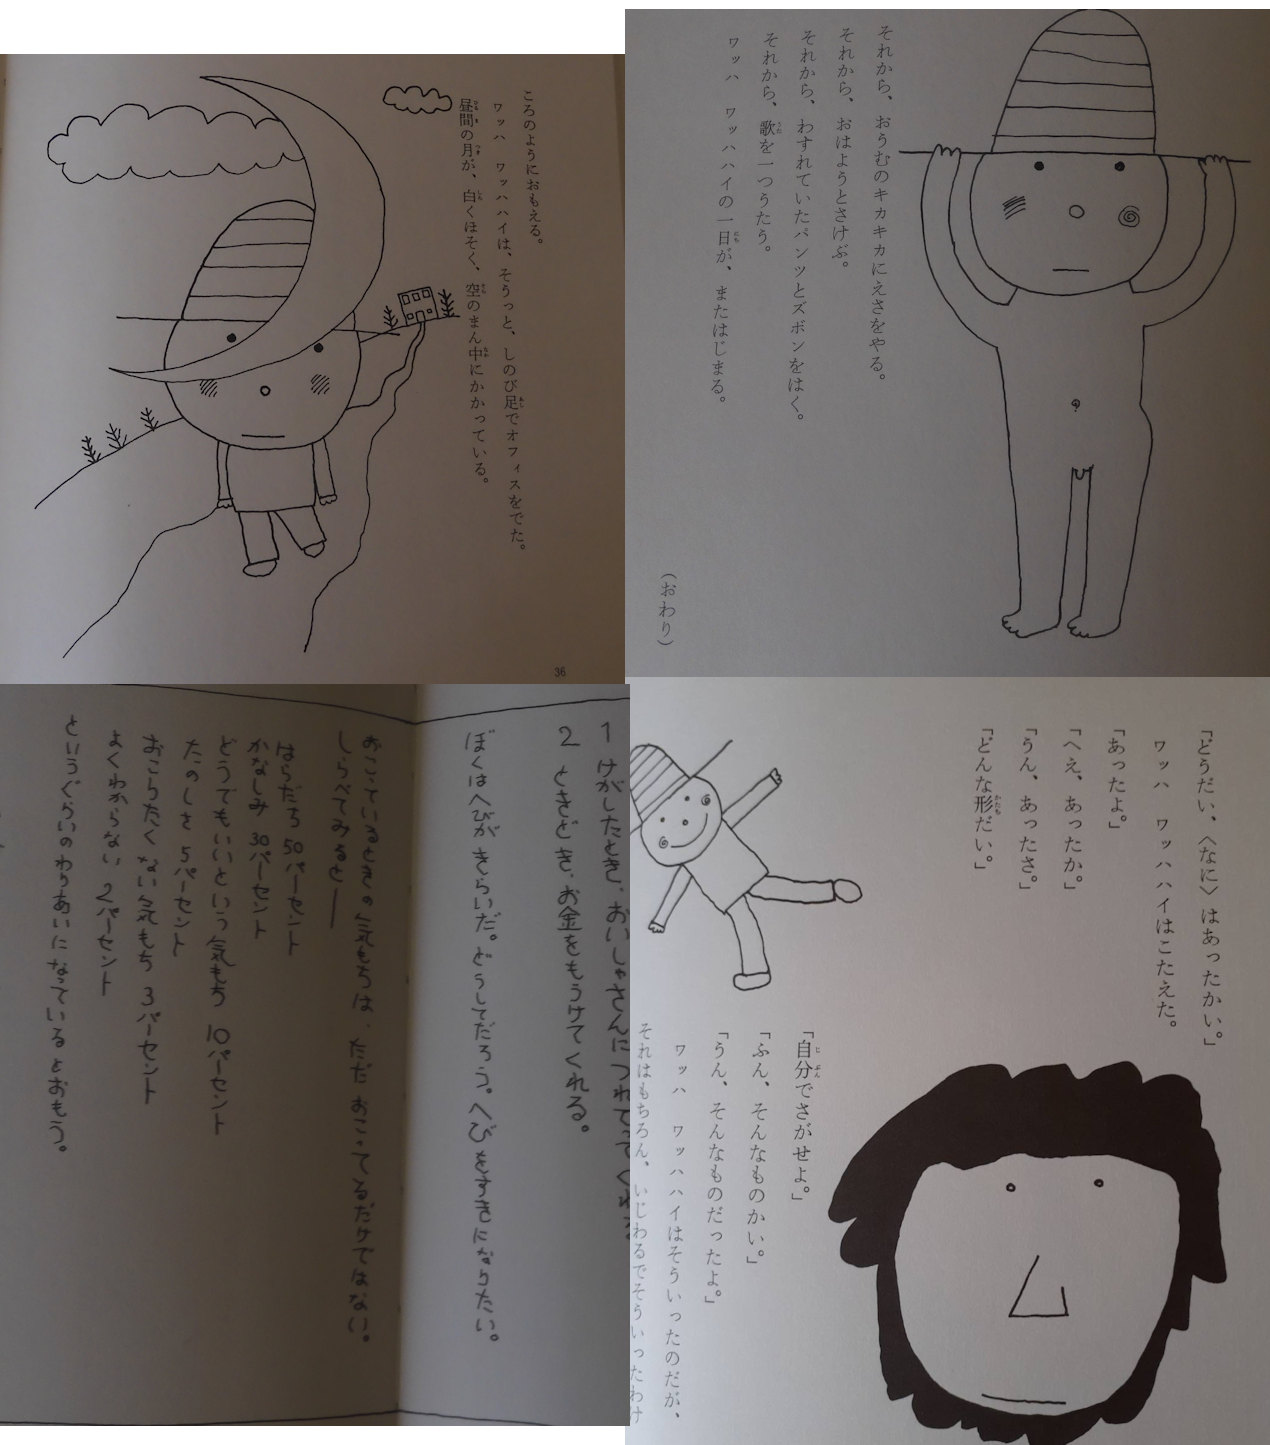 ころのようにおもえる。
ワッハ ワッハハイは、そうっと、しのび足でオフィスをでた。
昼間の月が、白くほそく、空のまん中にかかっている。
36
それから、おうむのキカキカにえさをやる。
それから、おはようとさけぶ。
それから、わすれていたパンツとズボンをはく。
それから、歌を一つうたう。
ワッハ ワッハハイの一日が、またはじまる。
(おわり)
1 けがしたとき、おいしゃさんにつれてってくれる
2 ときどき、お金をもうけてくれる。
ぼくはへびがきらいだ。どうしてだろう。へびをすきになりたい。
おこっているときの気もちは、ただおこってるだけではない。
しらべてみると――
はらだち 50パーセント
かなしみ 30パーセント
どうでもいいという気もち 10パーセント
たのしさ 5パーセント
おこりたくない気もち 3パーセント
よくわからない 2パーセント
というぐらいのわりあいになっているとおもう。
「どうだい、〈なに〉はあったかい。」
ワッハ ワッハハイはこたえた。
「あったよ。」
「へえ、あったか。」
「うん、あったさ。」
「どんな形だい。」
「自分でさがせよ。」
「ふん、そんなものかい。」
「うん、そんなものだったよ。」
ワッハ ワッハハイはそういったのだが、
それはもちろん、いじわるでそういったわけ